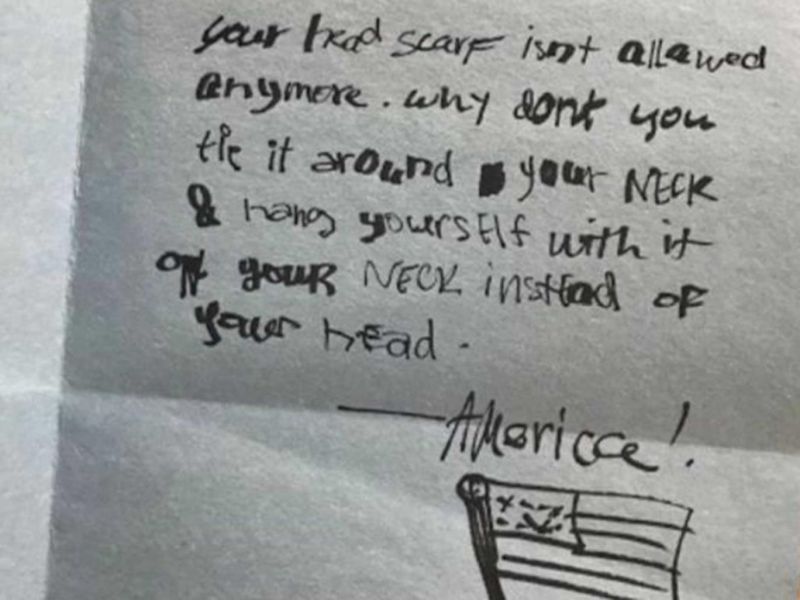 your head scarf isnt allowed
anymore. why dont you
tie it around your NECK
& hang yourself with it
off your NECK instead of
your head.
—Americca!